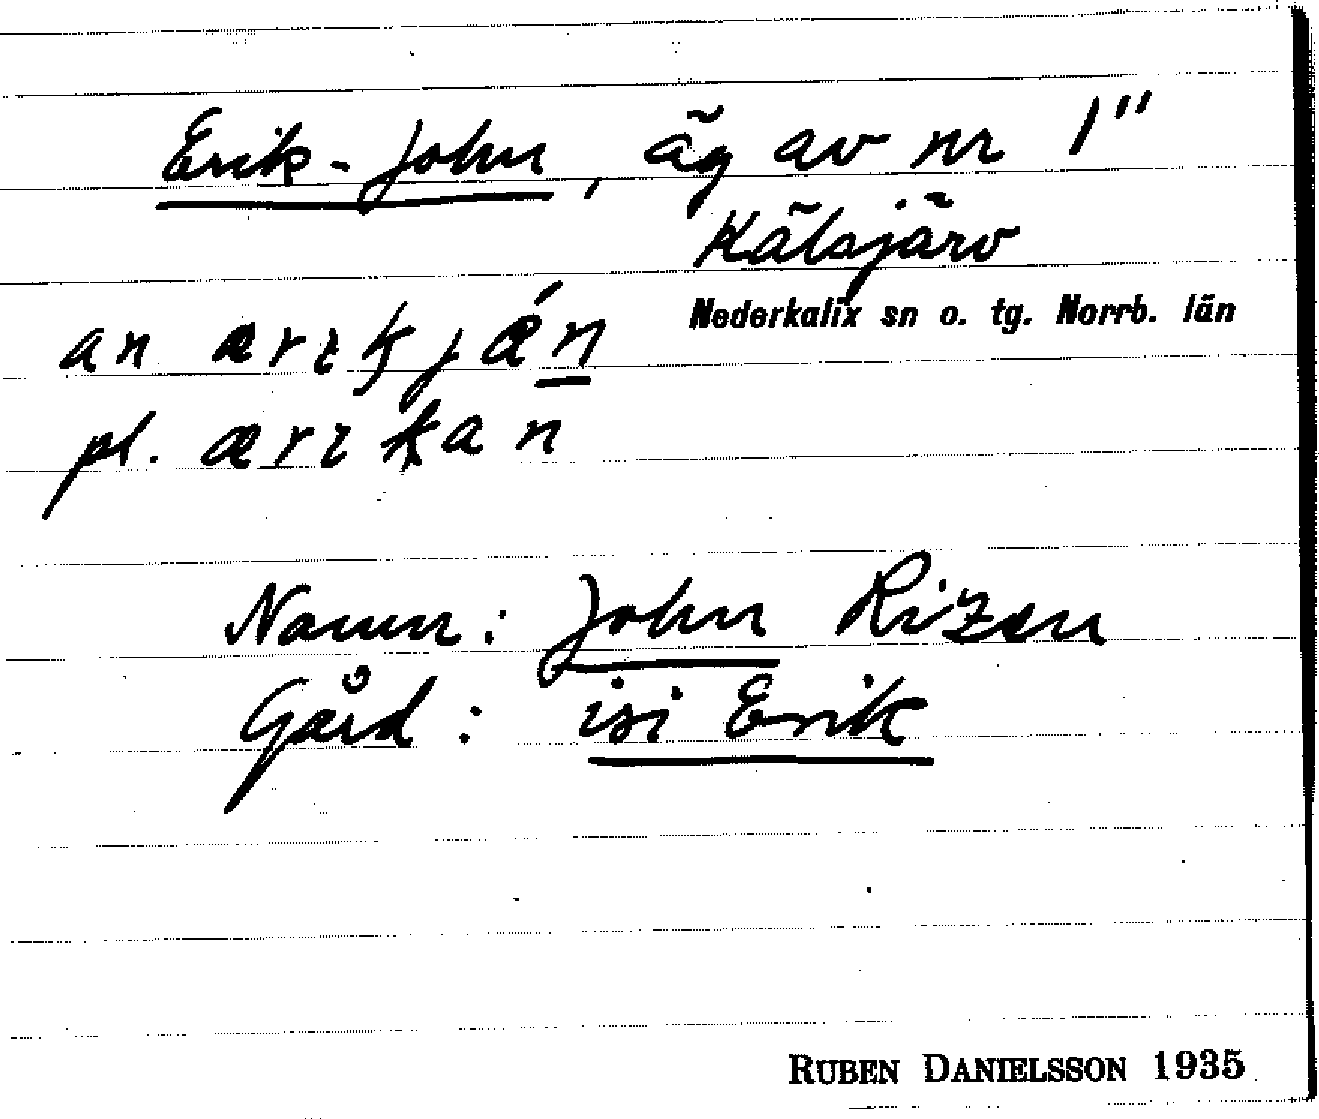 Erik-John, äg av nr 1"
Kälsjärv
Nederkalix sn o. tg. Norrb. län
an
pl.
Namn: John Rizen
Gård: isi Erik
RUBEN DANIELSSON 1935